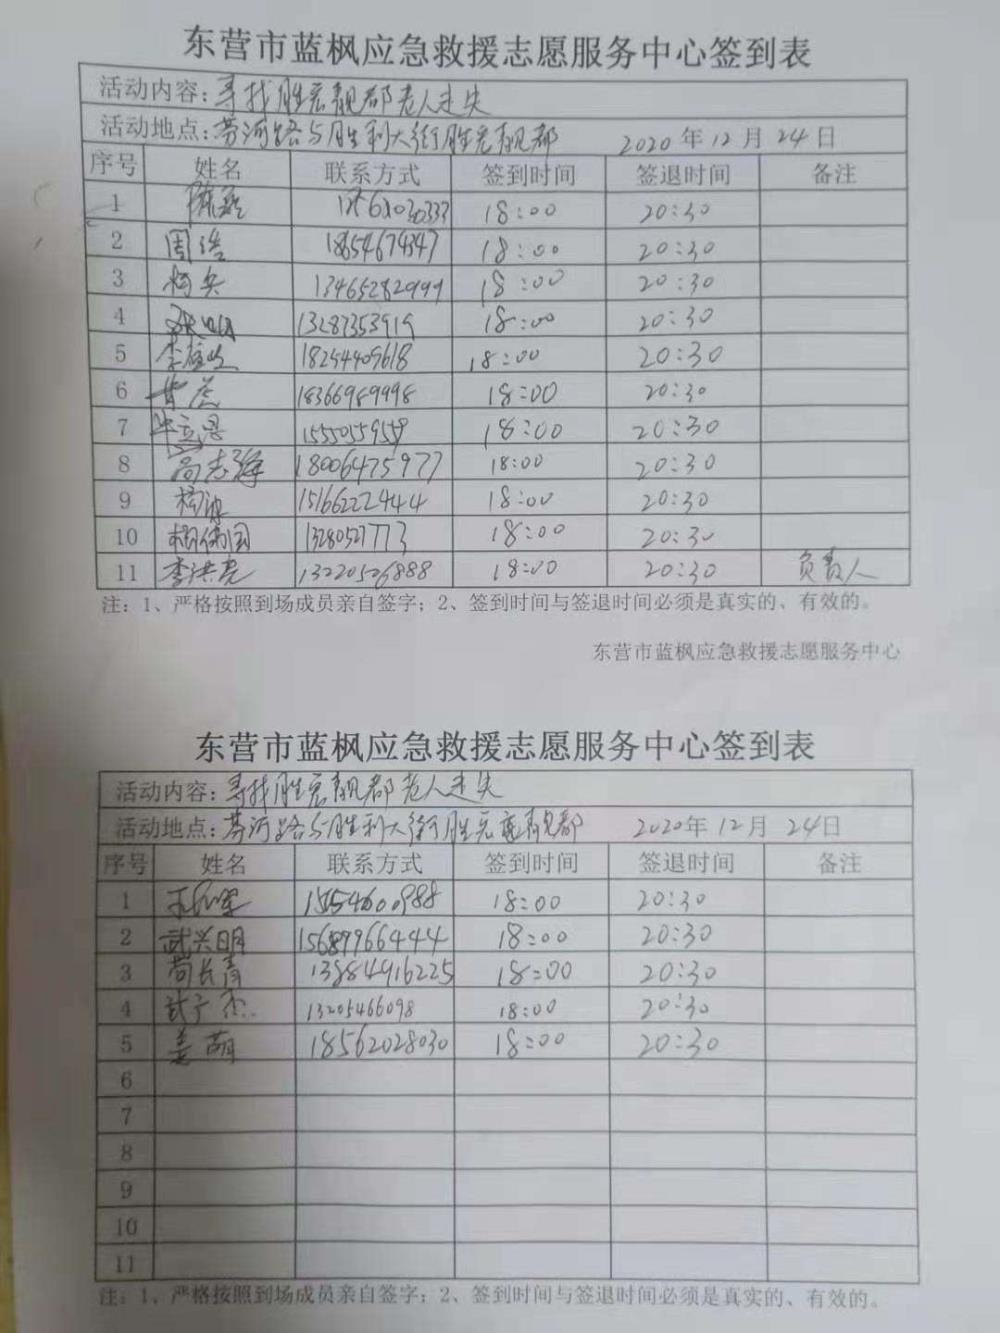 东营市蓝枫应急救援志愿服务中心签到表
活动内容：寻找胜宏靓都老人走失
活动地点：菏河路与胜利大街胜宏靓都 2020年12月24日
序号 姓名 联系方式 签到时间 签退时间 备注
1 18:00 20:30
2 周浩 18:00 20:30
3 13465282999 18:00 20:30
4 13287353919 18:00 20:30
5 18254409618 18:00 20:30
6 黄虎 18366989998 18:00 20:30
7 15550559559 18:00 20:30
8 尚志强 18006475977 18:00 20:30
9 15166222444 18:00 20:30
10 13280527773 18:00 20:30
11 李洪亮 13220526888 18:00 20:30 负责人
注：1、严格按照到场成员亲自签字；2、签到时间与签退时间必须是真实的、有效的。
东营市蓝枫应急救援志愿服务中心
东营市蓝枫应急救援志愿服务中心签到表
活动内容：寻找胜宏靓都老人走失
活动地点：菏河路与胜利大街胜宏靓都 2020年12月24日
序号 姓名 联系方式 签到时间 签退时间 备注
1 15554600988 18:00 20:30
2 武兴明 15689966444 18:00 20:30
3 苟长青 13884916225 18:00 20:30
4 13205466098 18:00 20:30
5 姜萌 18562028030 18:00 20:30
6
7
8
9
10
11
注：1、严格按照到场成员亲自签字；2、签到时间与签退时间必须是真实的、有效的。